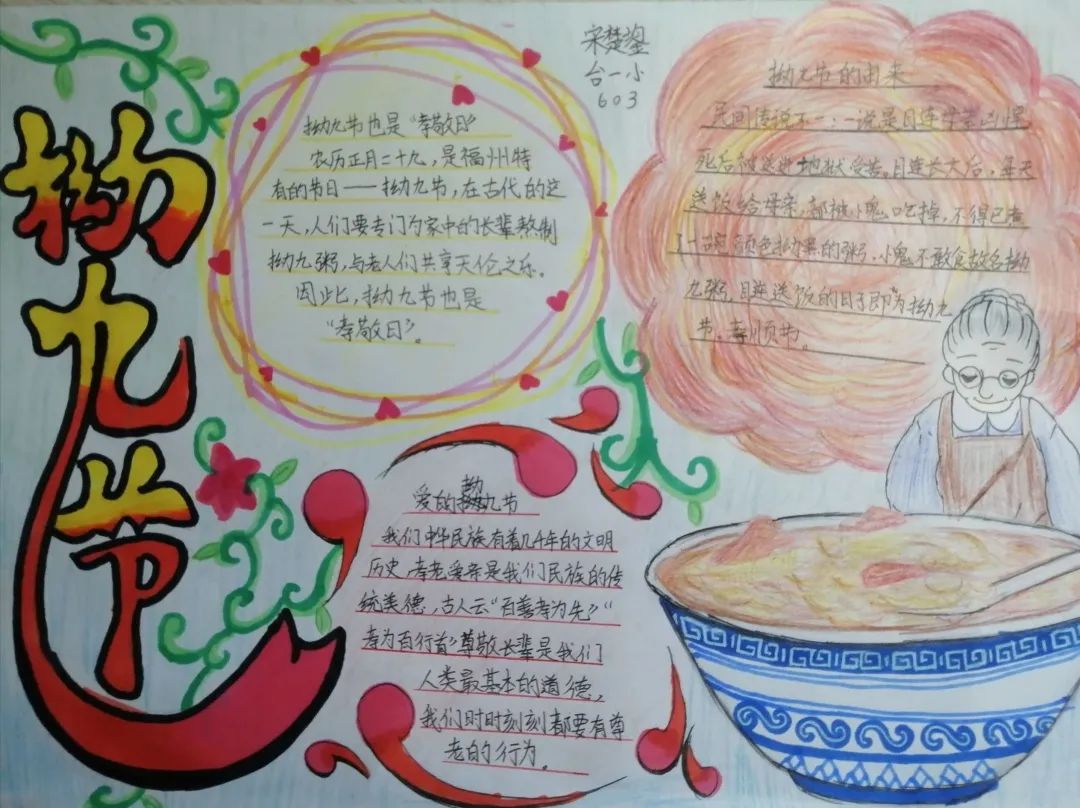 拗九节
拗九节也是“孝敬日”
农历正月二十九，是福州特
有的节日——拗九节，在古代的这
一天，人们要专门为家中的长辈熬制
拗九粥，与老人们共享天伦之乐。
因此，拗九节也是
“孝敬日”。
宋楚鋆
台一小
603
拗九节的由来
民间传说不一：一说是目连母亲凶悍
死后被送进地狱受苦。目连长大后，每天
送饭给母亲，都被小鬼吃掉，不得已煮
了一碗颜色拗黑的粥，小鬼不敢食故名拗
九粥，目连送饭的日子即为拗九
节，孝顺节。
爱的拗九节
我们中华民族有着几千年的文明
历史，孝老爱亲是我们民族的传
统美德，古人云“百善孝为先”“
孝为百行首”尊敬长辈是我们
人类最基本的道德，
我们时时刻刻都要有尊
老的行为。